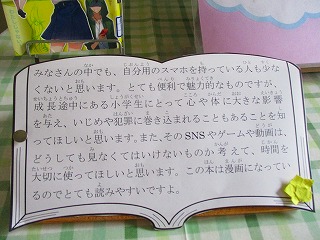 みなさんの中でも、自分用のスマホを持っている人も少な
くないと思います。とても便利で魅力的なものですが、
成長途中にある小学生にとって心や体に大きな影響
を与え、いじめや犯罪に巻き込まれることもあることを知
ってほしいと思います。また、そのSNSやゲームや動画は、
どうしても見なくてはいけないものか考えて、時間を
大切に使ってほしいと思います。この本は漫画になってい
るのでとても読みやすいですよ。